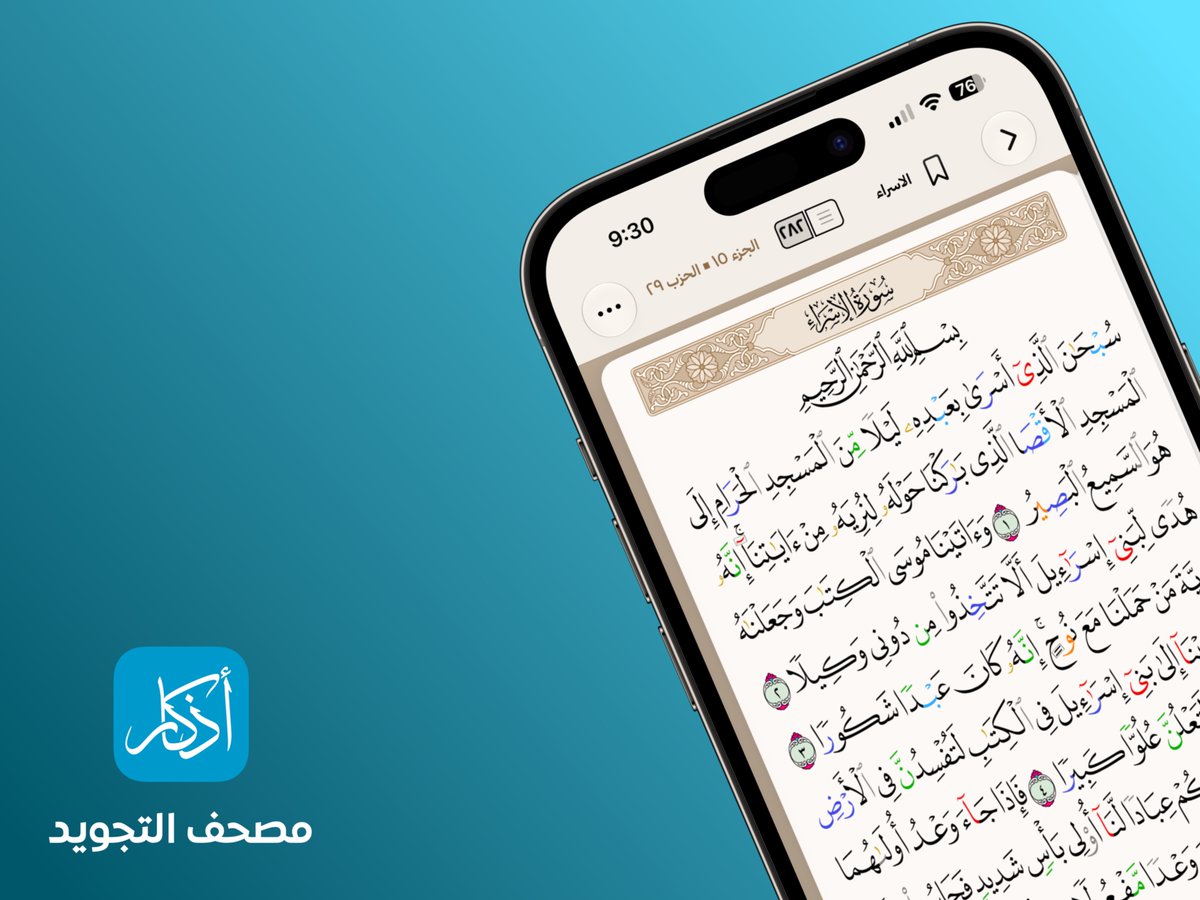 9:30
76
الاسراء
٢٨٢
الجزء ١٥ ▪ الحزب ٢٩
سُورَةُ الإِسْرَاءِ
بِسْمِ ٱللَّهِ ٱلرَّحْمَٰنِ ٱلرَّحِيمِ
سُبْحَٰنَ ٱلَّذِىٓ أَسْرَىٰ بِعَبْدِهِۦ لَيْلًا مِّنَ ٱلْمَسْجِدِ ٱلْحَرَامِ إِلَى
ٱلْمَسْجِدِ ٱلْأَقْصَا ٱلَّذِى بَٰرَكْنَا حَوْلَهُۥ لِنُرِيَهُۥ مِنْ ءَايَٰتِنَآ ۚ إِنَّهُۥ
هُوَ ٱلسَّمِيعُ ٱلْبَصِيرُ ١ وَءَاتَيْنَا مُوسَى ٱلْكِتَٰبَ وَجَعَلْنَٰهُ
هُدًى لِّبَنِىٓ إِسْرَٰٓءِيلَ أَلَّا تَتَّخِذُوا۟ مِن دُونِى وَكِيلًا ٢
مَنْ حَمَلْنَا مَعَ نُوحٍ ۚ إِنَّهُۥ كَانَ عَبْدًا شَكُورًا ٣
إِلَىٰ بَنِىٓ إِسْرَٰٓءِيلَ فِى ٱلْكِتَٰبِ لَتُفْسِدُنَّ فِى ٱلْأَرْضِ
عُلُوًّا كَبِيرًا ٤ فَإِذَا جَآءَ وَعْدُ أُولَىٰهُمَا
عِبَادًا لَّنَآ أُو۟لِى بَأْسٍ شَدِيدٍ
وَعْدًا مَّفْعُولًا
أذكار
مصحف التجويد